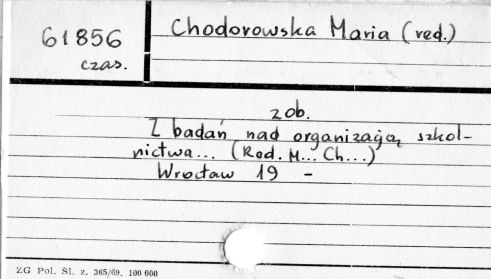 61856
czas.
Chodorowska Maria (red.)
zob.
Z badań nad organizacją szkol-
nictwa... (Red. M... Ch...)
Wrocław 19 -
ZG Pol. Śl. z. 365/69. 100 000